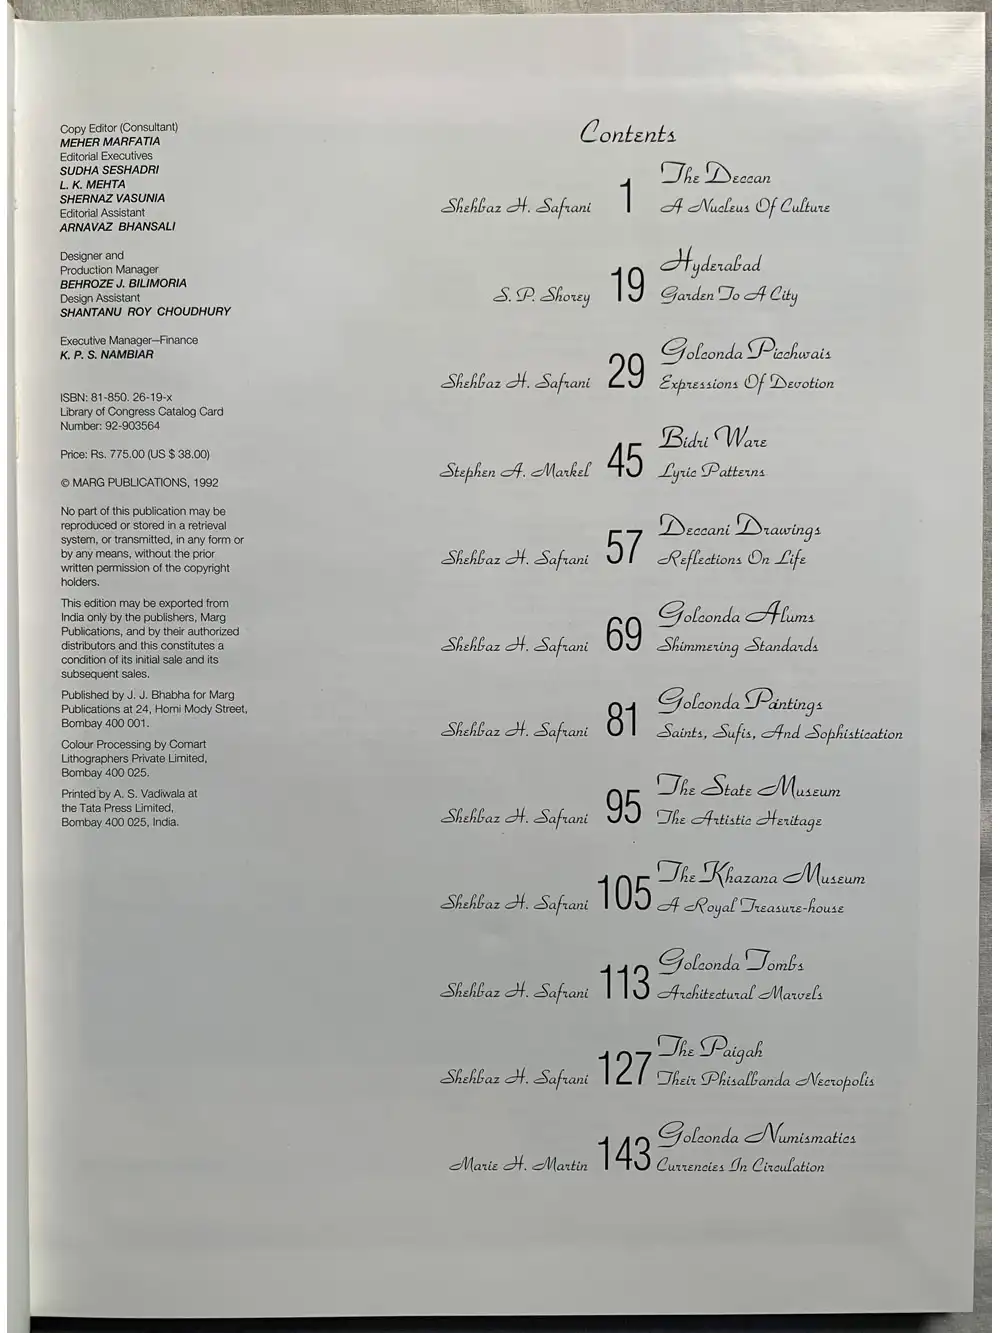 Copy Editor (Consultant)
MEHER MARFATIA
Editorial Executives
SUDHA SESHADRI
L. K. MEHTA
SHERNAZ VASUNIA
Editorial Assistant
ARNAVAZ BHANSALI
Designer and
Production Manager
BEHROZE J. BILIMORIA
Design Assistant
SHANTANU ROY CHOUDHURY
Executive Manager—Finance
K. P. S. NAMBIAR
ISBN: 81-850. 26-19-x
Library of Congress Catalog Card
Number: 92-903564
Price: Rs. 775.00 (US $ 38.00)
© MARG PUBLICATIONS, 1992
No part of this publication may be
reproduced or stored in a retrieval
system, or transmitted, in any form or
by any means, without the prior
written permission of the copyright
holders.
This edition may be exported from
India only by the publishers, Marg
Publications, and by their authorized
distributors and this constitutes a
condition of its initial sale and its
subsequent sales.
Published by J. J. Bhabha for Marg
Publications at 24, Homi Mody Street,
Bombay 400 001.
Colour Processing by Comart
Lithographers Private Limited,
Bombay 400 025.
Printed by A. S. Vadiwala at
the Tata Press Limited,
Bombay 400 025, India.
Contents
The Deccan
Shehbaz H. Safrani 1 A Nucleus Of Culture
Hyderabad
S. P. Shorey 19 Garden To A City
Golconda Picchwais
Shehbaz H. Safrani 29 Expressions Of Devotion
Bidri Ware
Stephen A. Markel 45 Lyric Patterns
Deccani Drawings
Shehbaz H. Safrani 57 Reflections On Life
Golconda Alums
Shehbaz H. Safrani 69 Shimmering Standards
Golconda Paintings
Shehbaz H. Safrani 81 Saints, Sufis, And Sophistication
The State Museum
Shehbaz H. Safrani 95 The Artistic Heritage
The Khazana Museum
Shehbaz H. Safrani 105 A Royal Treasure-house
Golconda Tombs
Shehbaz H. Safrani 113 Architectural Marvels
The Paigah
Shehbaz H. Safrani 127 Their Phisalbanda Necropolis
Golconda Numismatics
Marie H. Martin 143 Currencies In Circulation